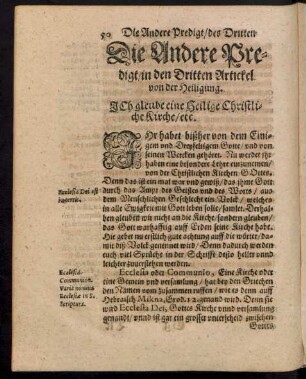 50 Die Andere Predigt/des Dritten
Die Andere Pre-
digt/in den Dritten Artickel
von der Heiligung.
ICh gleube eine Heilige Christli-
che Kirche/etc.
IHr habet bißher von dem Eini-
gen und Dreyfeltigem Gotte/ und von
seinen Wercken gehöret. Nu werdet ihr
haben eine besondere Lehre
von der Christlichen Kirchen Gottes.
Denn das ist ein mal war und gewiß/ das ihme Gott
Ecclesia Dei est
durch das Ampt des Geistes und des Worts/ aus
dem Menschlichen Geschlechte ein Volck/ welches
in alle Ewigkeit um Gott leben solte/ samlet. Deßha-
ben gleuben wir nicht an die Kirche/ sondern gleuben/
das Gott warhafftig auff Erden seine Kirche habe.
Hie gebet mir erstlich gute achtung auff die wörter/ da-
mit diß Volck genennet wird/ Denn dadurch werden
euch viel Sprüche in der Schrifft deßto heller und
leichter zuverstehen werden.
Ecclesia.
Communio.
Varia nomina
Ecclesiæ in S.
scriptura.
Ecclesia oder Communio, Eine Kirche oder
eine Gemein und versamlung/ hat bey den Griechen
den Namen vom zusammen ruffen/ wie es denn auff
Hebraisch Mikra, Exod. 12. genand wird. Denn sie
wird Ecclesia Dei, Gottes Kirche unnd versamlung
genandt/ unnd ist gar ein grosser unterscheid zwischen
Gottes